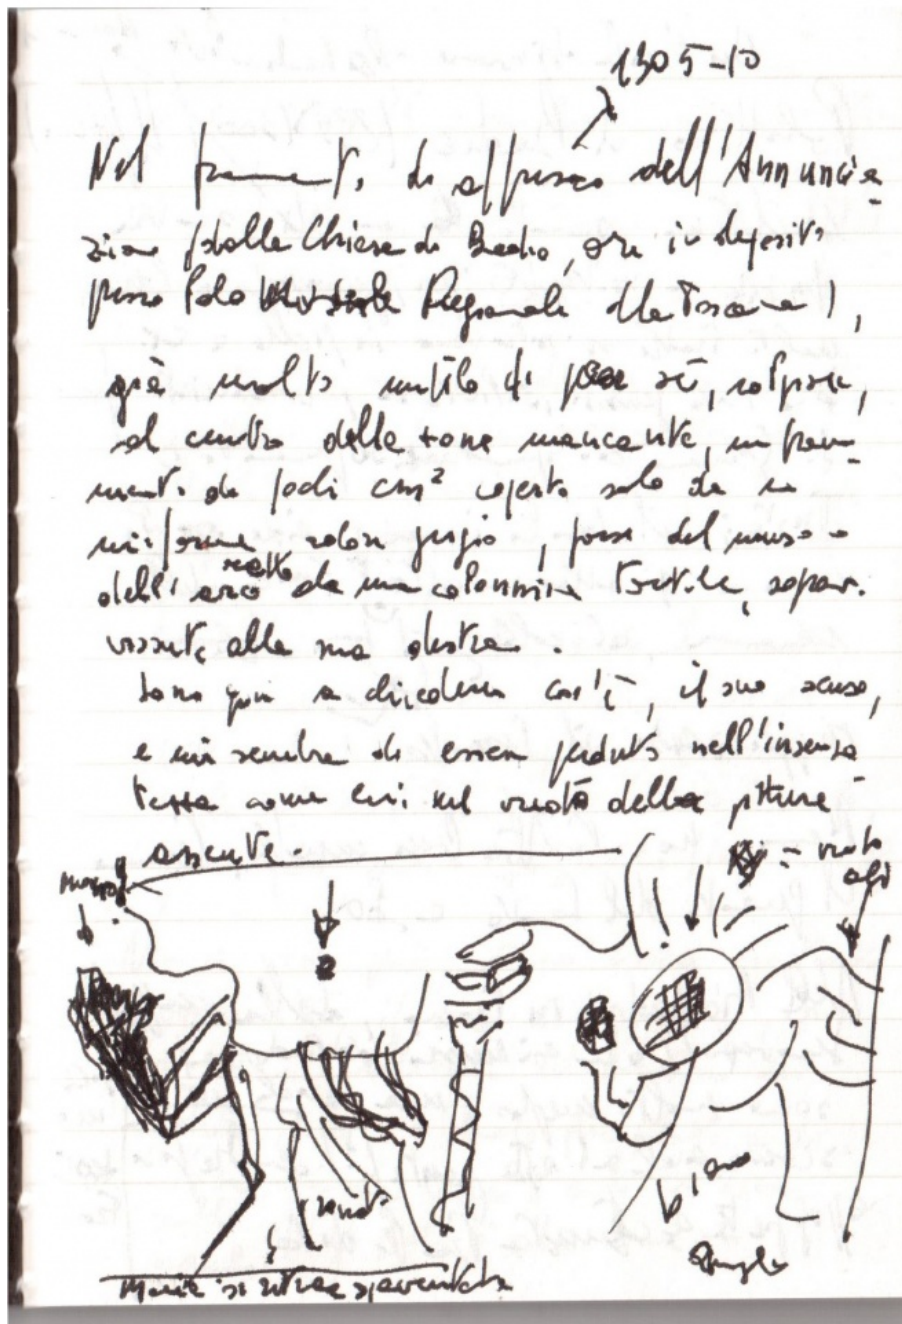 1305-10
Nel frammento di affresco dell'Annuncia-
zione (dalla Chiesa di Badia, ora in deposito
presso Polo Museale Regionale della Toscana),
già molto mutilo di per sé, colpisce,
al centro della zona mancante, un fram-
mento di pochi cm² coperto solo da un
uniforme color grigio, forse del muro o
dell'arco retto da una colonnina tortile, soprav-
vissuta alla sua destra.
Sono qui a chiedermi cos'è, il suo senso,
e mi sembra di essere perduto nell'insensa
tezza come lui nel vuoto della pittura
assente.
vuoto
ali
vuoto
bianco
Angelo
Maria si ritrae spaventata